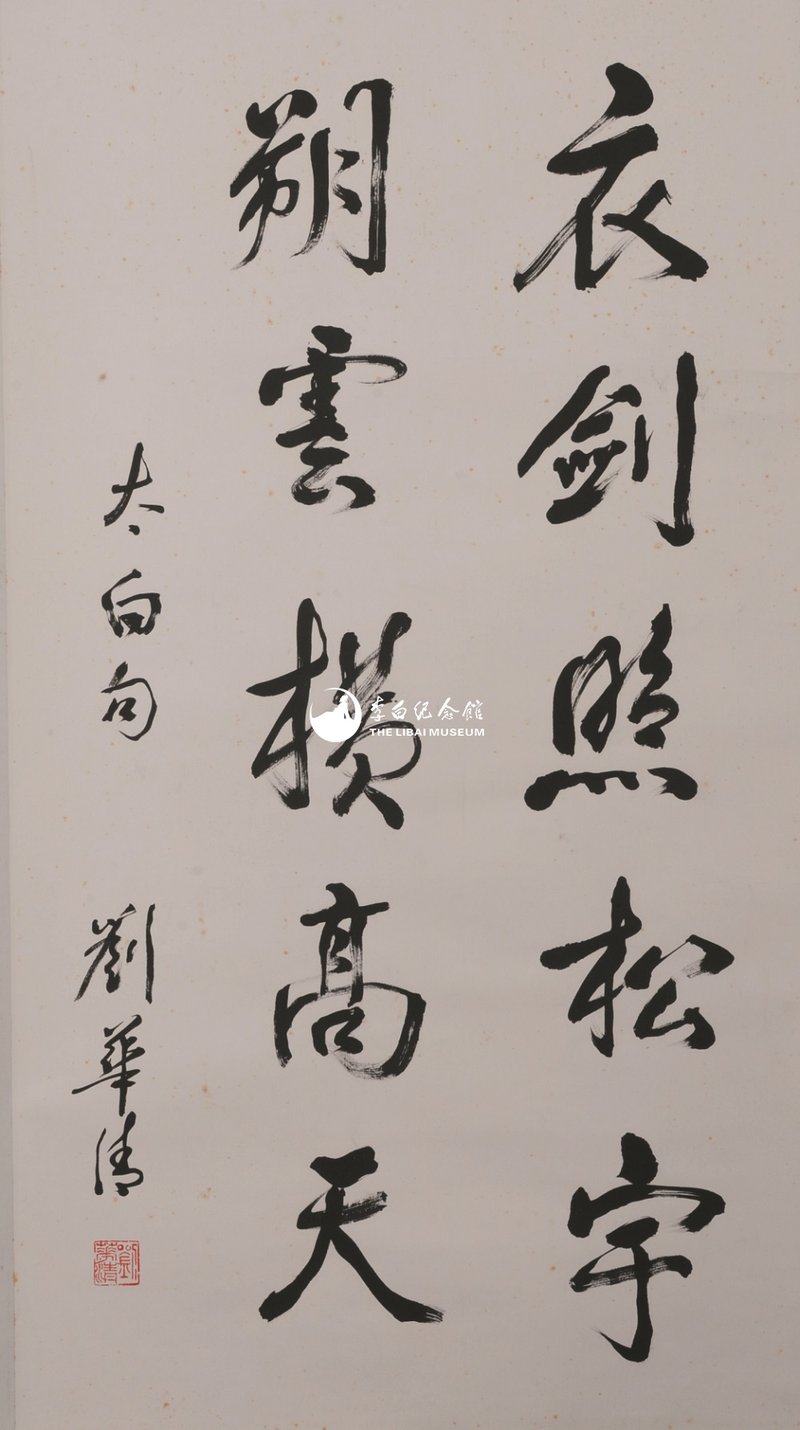 衣劍照松宇
朔雲橫高天
太白句
劉華清
劉華清
李白纪念館
THE LIBAI MUSEUM